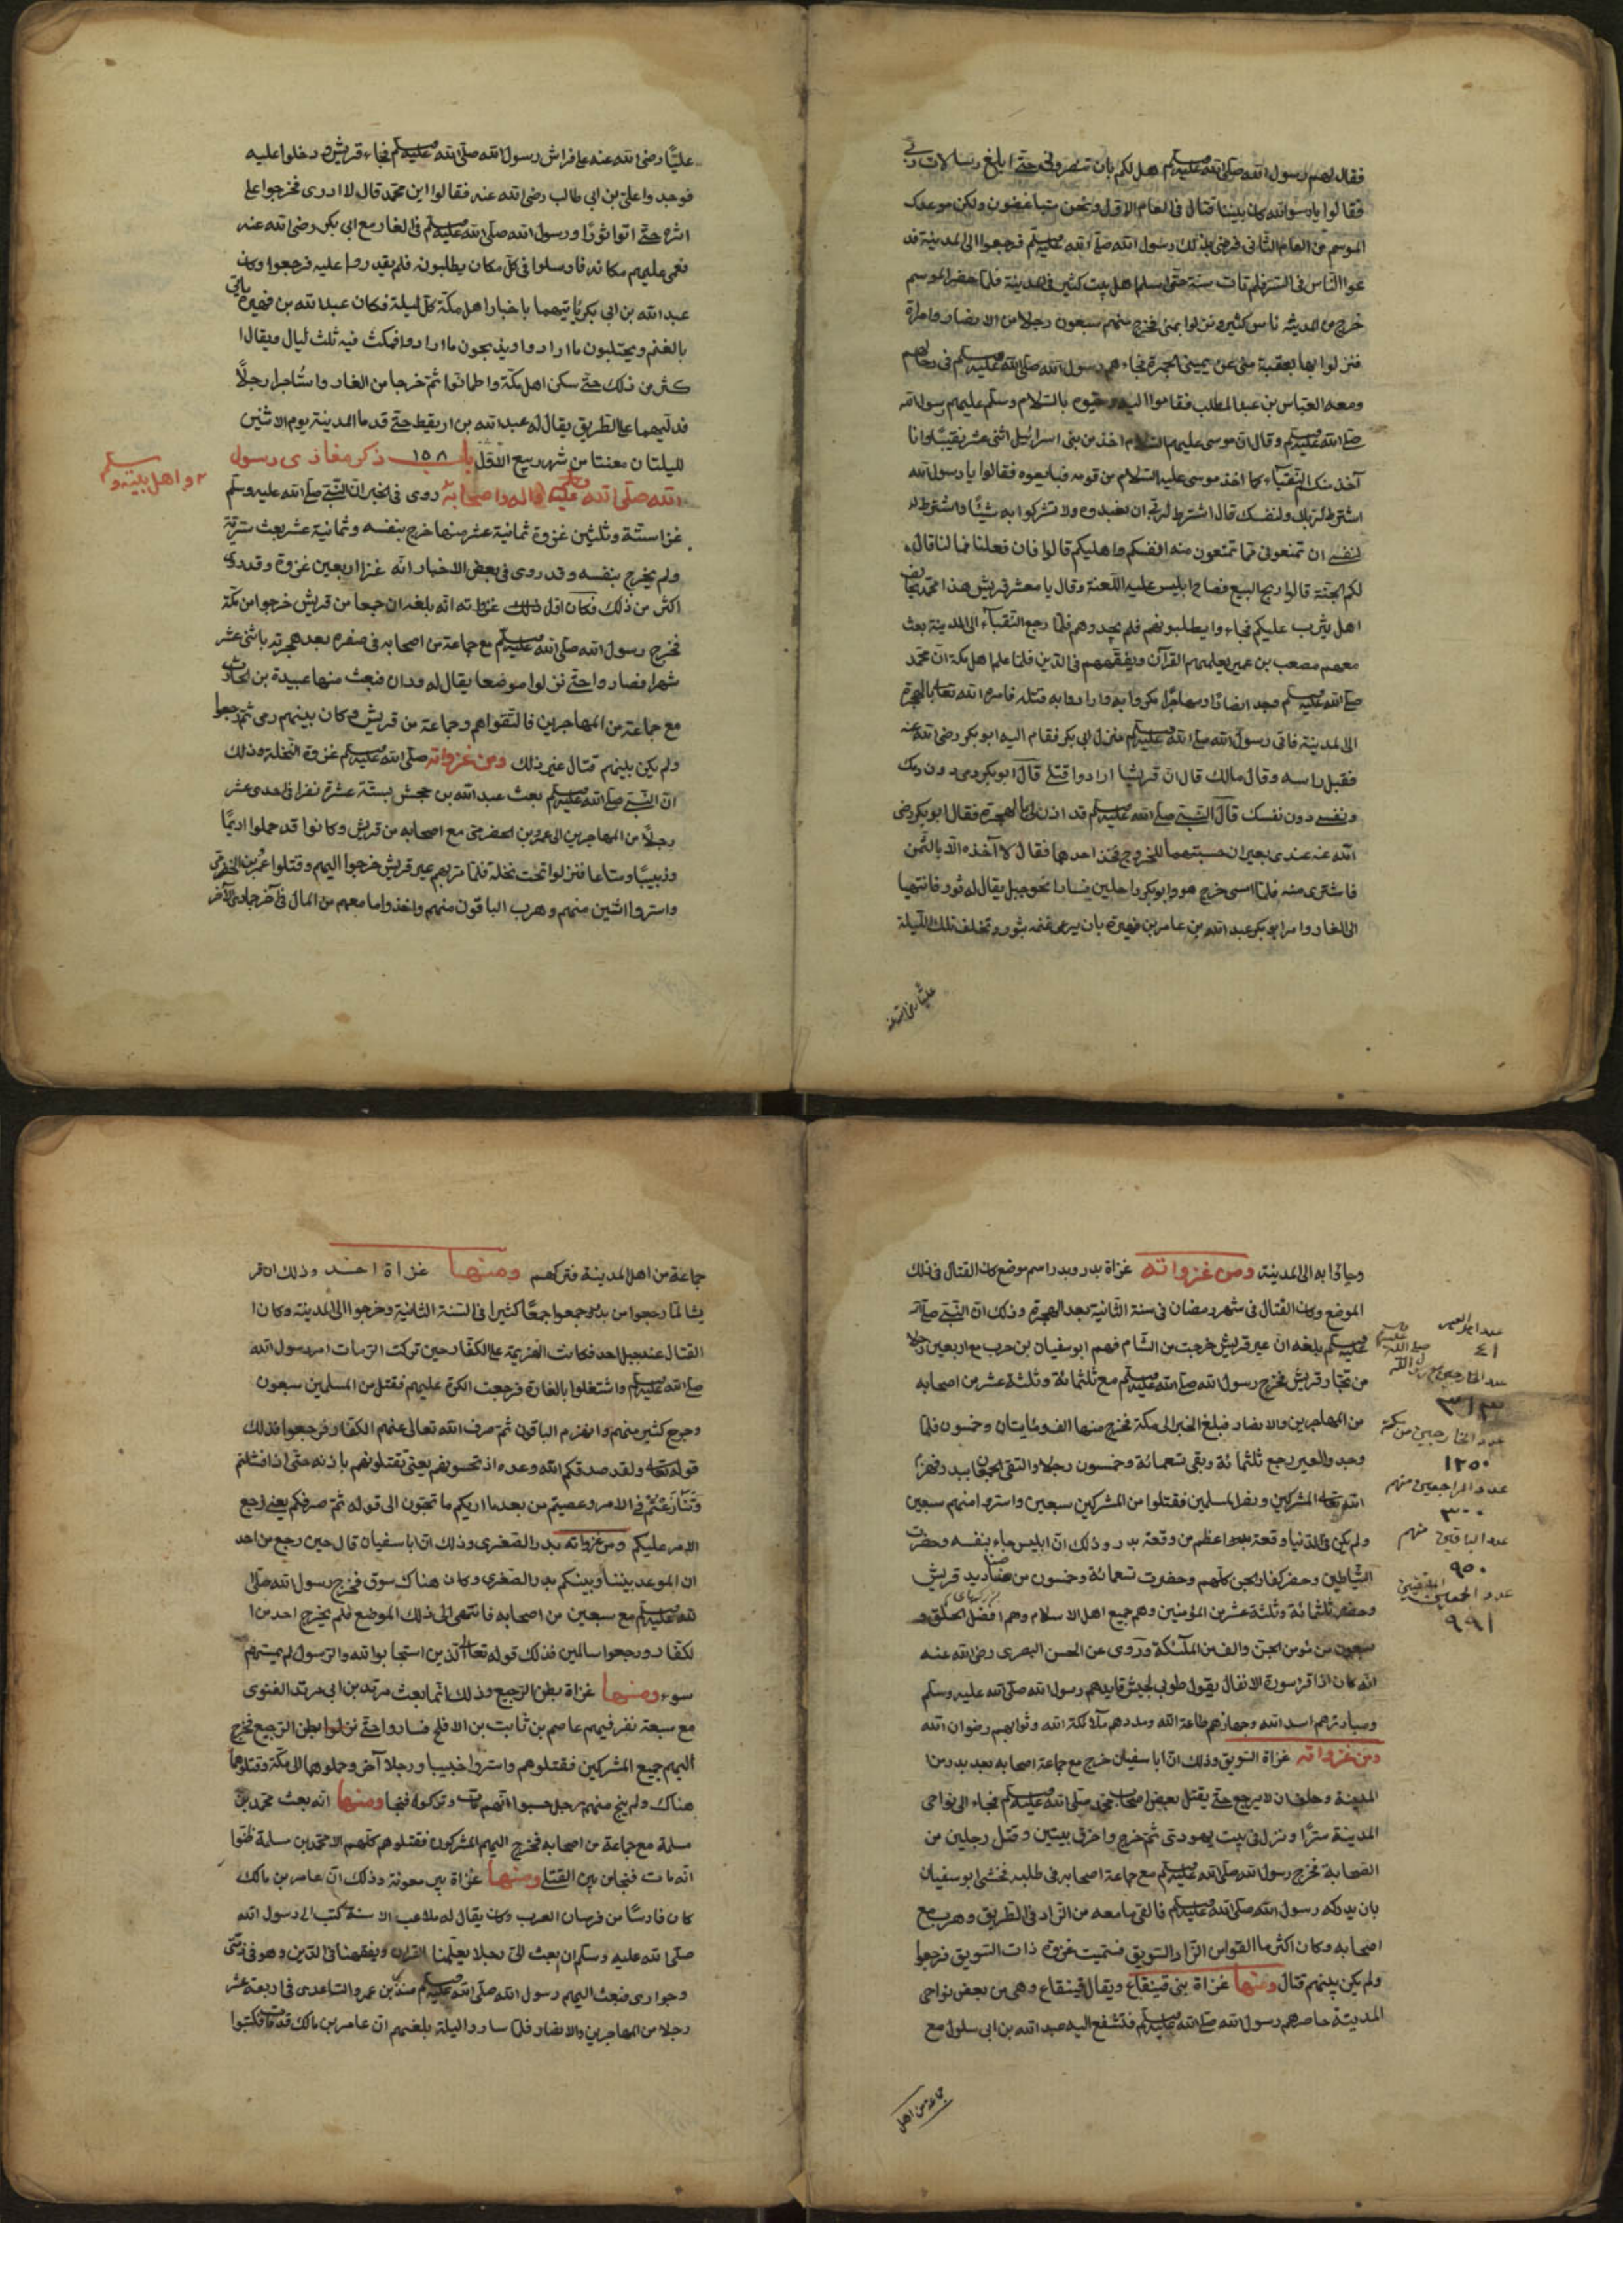 فقال لهم رسول الله صلى الله عليه وسلم هل لكم بان تنصروني حتى ابلغ رسالات ربي
فقالوا يا رسول الله كان بيننا قتال في العام الاول ونحن متباغضون ولكن موعدك
الموسم من العام الثاني فرضي بذلك رسول الله صلى الله عليه وسلم فرجعوا الى المدينة فد
عوا الناس في السر فلم تات سنة حتى اسلم اهل بيت كثير في المدينة فلما حضر الموسم
خرج من المدينة ناس كثير ونزلوا بمنى فخرج منهم سبعون رجلا من الانصار وامراة
فنزلوا بها بعقبة منى عن يمين الجمرة فجاءهم رسول الله صلى الله عليه وسلم في رحالهم
ومعه العباس بن عبد المطلب فقاموا اليه وحيوه بالسلام وسلم عليهم رسول الله
صلى الله عليه وسلم وقال ان موسى عليه السلام اخذ من بني اسرائيل اثنى عشر نقيبا وانا
آخذ منكم النقباء كما اخذ موسى عليه السلام من قومه فبايعوه فقالوا يا رسول الله
اشترط لربك ولنفسك قال اشترط لربي ان تعبدوه ولا تشركوا به شيئا واشترط
لنفسي ان تمنعوني مما تمنعون منه انفسكم واهليكم قالوا فان فعلنا فما لنا قال
لكم الجنة قالوا ربح البيع فصاح ابليس عليه اللعنة وقال يا معشر قريش هذا محمد يحالف
اهل يثرب عليكم فجاءوا يطلبونهم فلم يجدوهم فلما رجع النقباء الى المدينة بعث
معهم مصعب بن عمير يعلمهم القرآن ويفقههم في الدين فلما علم اهل مكة ان محمد
صلى الله عليه وسلم وجد انصارا ومهاجرا مكروا به وارادوا به قتله فامره الله تعالى بالهجرة
الى المدينة فاتى رسول الله صلى الله عليه وسلم منزل ابي بكر فقام اليه ابو بكر رضي الله عنه
فقبل راسه وقال مالك قال ان قريشا ارادوا قتلي قال ابو بكر دمي دون دمك
ونفسي دون نفسك قال النبي صلى الله عليه وسلم قد اذن لي بالهجرة فقال ابو بكر رضي
الله عنه عندي بعيران حبستهما للخروج فخذ احدهما فقال لا آخذه الا بالثمن
فاشترى منه فلما امسى خرج هو وابو بكر راحلين فسارا نحو جبل يقال له ثور فانتهيا
الى الغار وامر ابو بكر عبد الله بن عامر بن فهيرة بان يرعى غنمه بثور وتخلف تلك الليلة
عليا رضي الله عنه
عليا رضي الله عنه على فراش رسول الله صلى الله عليه وسلم فجاء قريش ودخلوا عليه
فوجدوا علي بن ابي طالب رضي الله عنه فقالوا اين محمد قال لا ادري فخرجوا على
اثره حتى اتوا ثورا ورسول الله صلى الله عليه وسلم في الغار مع ابي بكر رضي الله عنه
فعمي عليهم مكانه فارسلوا في كل مكان يطلبونه فلم يقدروا عليه فرجعوا وكان
عبد الله بن ابي بكر ياتيهما باخبار اهل مكة كل ليلة فكان عبد الله بن فهيرة ياتي
بالغنم ويحتلبون ما ارادوا ويذبحون ما ارادوا فمكث فيه ثلث ليال ويقال ا
كثر من ذلك حتى سكن اهل مكة واطمانوا ثم خرجا من الغار واستاجرا رجلا
فدليهما على الطريق يقال له عبد الله بن اريقط حتى قدما المدينة يوم الاثنين
لليلتان مضتا من شهر ربيع الاول باب ١٥٨ ذكر مغازي رسول
الله صلى الله عليه وآله واصحابه روى في الخبر ان النبي صلى الله عليه وسلم
واهل بيته وسلم
غزا ستة وثلثين غزوة ثمانية عشر منها خرج بنفسه وثمانية عشر بعث سرية
ولم يخرج بنفسه وقد روى في بعض الاخبار انه غزا اربعين غزوة وقد روى
اكثر من ذلك فكان اول ذلك غزاته انه بلغه ان جمعا من قريش خرجوا من مكة
فخرج رسول الله صلى الله عليه وسلم مع جماعة من اصحابه في صفر بعد هجرته باثنى عشر
شهرا فصاروا حتى نزلوا موضعا يقال له ودان فبعث منها عبيدة بن الحارث
مع جماعة من المهاجرين فالتقوا هم وجماعة من قريش وكان بينهم رمي ثم رجعوا
ولم يكن بينهم قتال غير ذلك ومن غزواته صلى الله عليه وسلم غزوة النخلة وذلك
ان النبي صلى الله عليه وسلم بعث عبد الله بن جحش بستة عشرة نفرا في احدى عشر
رجلا من المهاجرين الى عمرو بن الحضرمي مع اصحابه من قريش وكانوا قد حملوا اديما
وزبيبا ومتاعا فنزلوا تحت نخلة فلما مر بهم عير قريش خرجوا اليهم وقتلوا عمرو بن الحضرمي
واسروا اثنين منهم وهرب الباقون منهم واخذوا ما معهم من المال في آخر جمادى الآخر
وجاؤا به الى المدينة ومن غزواته غزاة بدر وبدر اسم موضع كان القتال في ذلك
الموضع وكان القتال في شهر رمضان في سنة الثانية بعد الهجرة وذلك ان النبي صلى الله
عليه وسلم بلغه ان عير قريش خرجت من الشام فهم ابو سفيان بن حرب مع اربعين رجلا
من تجار قريش فخرج رسول الله صلى الله عليه وسلم مع ثلثمائة وثلثة عشر من اصحابه
من المهاجرين والانصار فبلغ الخبر الى مكة فخرج منها الف ومايتان وخمسون فلما
وجدوا العير رجع ثلثمائة وبقى تسعمائة وخمسون رجلا والتقى الجمعان ببدر فهزم
الله تعالى المشركين ونصر المسلمين فقتلوا من المشركين سبعين واسروا منهم سبعين
ولم يكن في الدنيا وقعة اعظم من وقعة بدر وذلك ان ابليس جاء بنفسه وحضرت
الشياطين وحضر كفار الجن كلهم وحضرت تسعمائة وخمسون من صناديد قريش
وحضر ثلثمائة وثلثة عشر من المؤمنين وهم جميع اهل الاسلام وهم افضل الخلق و
سبعون من مؤمن الجن والف من الملئكة وروى عن الحسن البصري رضي الله عنه
انه كان اذا قرا سورة الانفال يقول طوبى لجيش قايدهم رسول الله صلى الله عليه وسلم
ومبارزهم اسد الله وجهازهم طاعة الله ومددهم ملائكة الله وثوابهم رضوان الله
ومن غزواته غزاة السويق وذلك ان ابا سفيان خرج مع جماعة اصحابه بعد بدر من ا
لمدينة وحلف ان لا يرجع حتى يقتل بعض اصحاب محمد صلى الله عليه وسلم فجاء الى نواحي
المدينة سرا ونزل في بيت يهودي ثم خرج واحرق بيتين وقتل رجلين من
الصحابة فخرج رسول الله صلى الله عليه وسلم مع جماعة اصحابه في طلبه فخشي ابو سفيان
بان يدركه رسول الله صلى الله عليه وسلم فالقى ما معه من الزاد في الطريق وهرب مع
اصحابه وكان اكثر ما القوا من الزاد السويق فسميت غزوة ذات السويق فرجعوا
ولم يكن بينهم قتال ومنها غزاة بني قينقاع ويقال قينقاع وهي من بعض نواحي
المدينة حاصرهم رسول الله صلى الله عليه وسلم فتشفع اليه عبد الله بن ابي سلول مع
جماعة من اهل
٤١
٣١٣
عدد الخارجين من مكة
١٢٥٠
عدد الراجعين منهم
٣٠٠
عدد الباقين منهم
٩٥٠
٩٩١
جماعة من اهل المدينة فتركهم ومنها غزاة احد وذلك ان قر
يشا لما رجعوا من بدر وجمعوا جمعا كثيرا في السنة الثانية وخرجوا الى المدينة وكان ا
لقتال عند جبل احد فكانت الهزيمة على الكفار حين تركت الرمات امر رسول الله
صلى الله عليه وسلم واشتغلوا بالغارة فرجعت الكرة عليهم فقتل من المسلمين سبعون
وجرح كثير منهم وانهزم الباقون ثم صرف الله تعالى عنهم الكفار فرجعوا فذلك
قوله تعالى ولقد صدقكم الله وعده اذ تحسونهم يعني تقتلونهم باذنه حتى اذا فشلتم
وتنازعتم في الامر وعصيتم من بعد ما اريكم ما تحبون الى قوله ثم صرفكم يعني رجع
الامر عليكم ومن غزواته بدر الصغرى وذلك ان ابا سفيان قال حين رجع من احد
ان الموعد بيننا وبينكم بدر الصغرى وكان هناك سوق فخرج رسول الله صلى ا
لله عليه وسلم مع سبعين من اصحابه فانتهى الى ذلك الموضع فلم يخرج احد من ا
لكفار ورجعوا سالمين فذلك قوله تعالى الذين استجابوا لله والرسول لم يمسسهم
سوء ومنها غزاة بطن الرجيع وذلك انما بعث مرثد بن ابي مرثد الغنوي
مع سبعة نفر فيهم عاصم بن ثابت بن الافلح فساروا حتى نزلوا بطن الرجيع فخرج
اليهم جميع المشركين فقتلوهم واسروا خبيبا ورجلا آخر وحملوهما الى مكة وقتلوهما
هناك ولم ينج منهم رجل حسبوا انهم مات وتركوه فنجا ومنها انه بعث محمد بن
سلمة مع جماعة من اصحابه فخرج اليهم المشركون فقتلوهم كلهم الا محمد بن سلمة ظنوا
انه مات فنجا من بين القتلى ومنها غزاة بير معونة وذلك ان عامر بن مالك
كان فارسا من فرسان العرب وكان يقال له ملاعب الاسنة كتب الى رسول الله
صلى الله عليه وسلم ان بعث الي رجلا يعلمنا القرآن ويفقهنا في الدين وهو في ذمتي
وجواري فبعث اليهم رسول الله صلى الله عليه وسلم منذر بن عمرو الساعدي في اربعة عشر
رجلا من المهاجرين والانصار فلما ساروا ليلة بلغهم ان عامر بن مالك قد مات فكتبوا